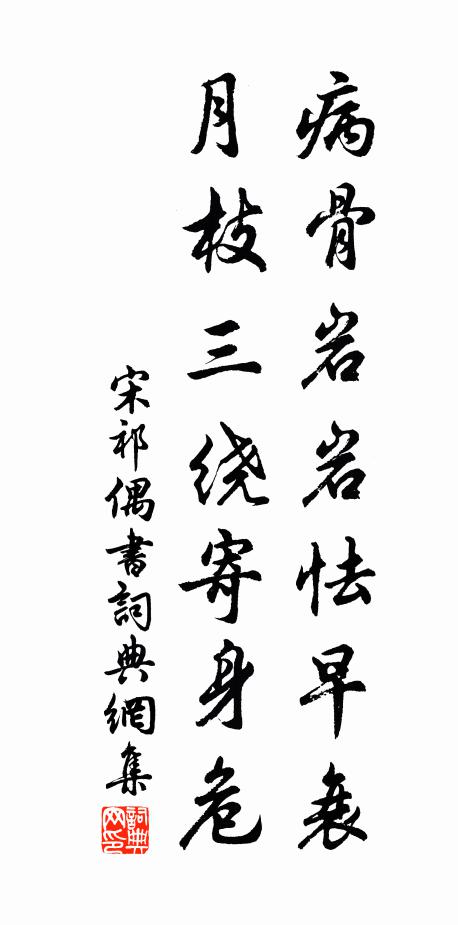 病骨岩岩怯早衰
月枝三绕寄身危
宋祁偶書詞典網集
詞典网印